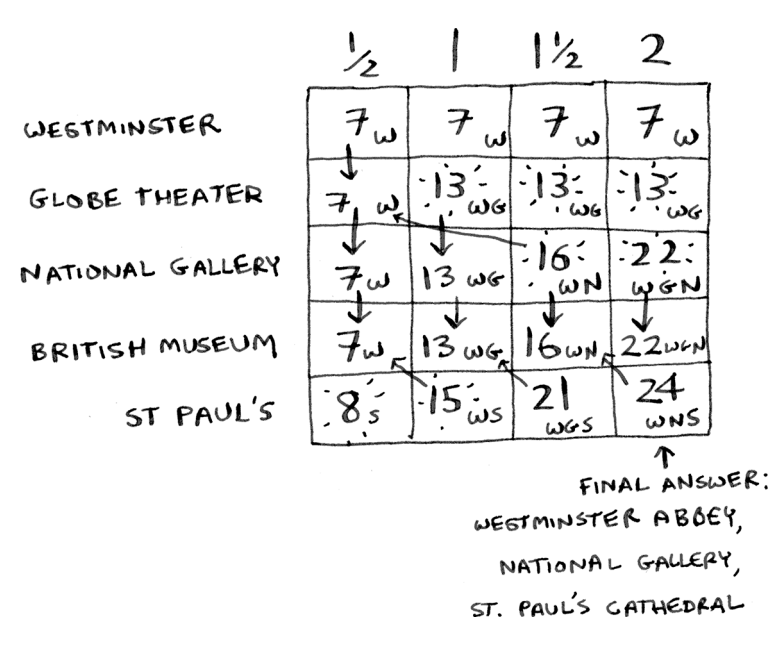 1/2 1 1 1/2 2
WESTMINSTER 7 W 7 W 7 W 7 W
GLOBE THEATER 7 W 13 WG 13 WG 13 WG
NATIONAL GALLERY 7 W 13 WG 16 WN 22 WGN
BRITISH MUSEUM 7 W 13 WG 16 WN 22 WGN
ST PAUL'S 8 S 15 WS 21 WGS 24 WNS
FINAL ANSWER:
WESTMINSTER ABBEY,
NATIONAL GALLERY,
ST. PAUL'S CATHEDRAL